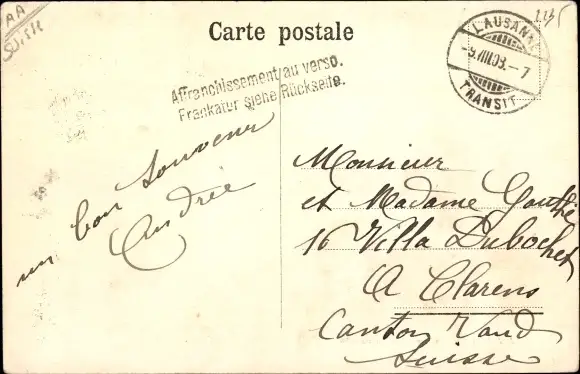 AA
Suisse
Carte postale
LAUSANNE
-9.VIII.08.-7
TRANSIT
Affranchissement au verso.
Frankatur siehe Rückseite.
un bon souvenir
Andrée
Monsieur
et Madame Gauthé
16 Villa Dubochet
A Clarens
Canton Vaud
Suisse